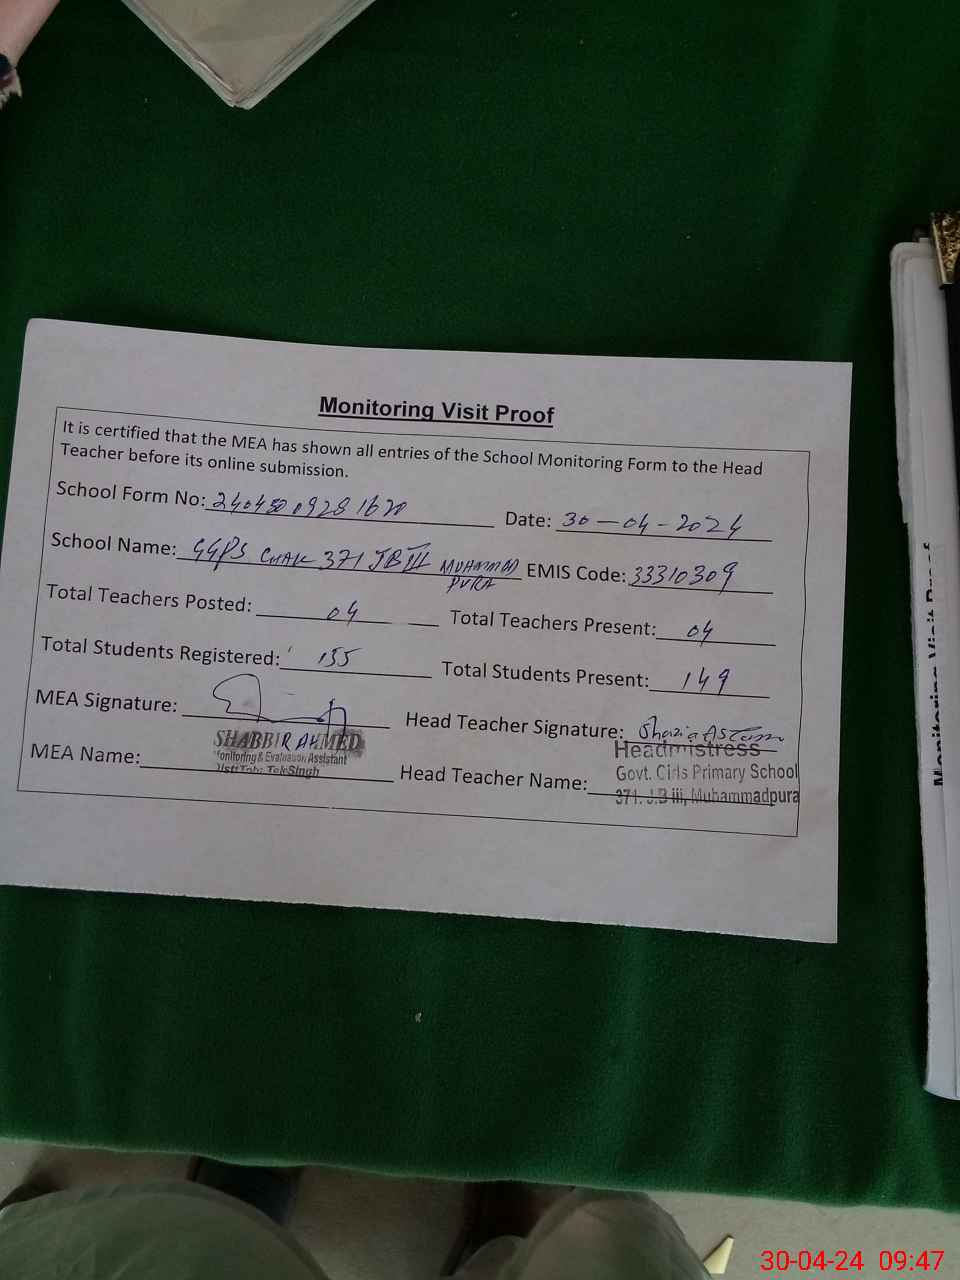 Monitoring Visit Proof
It is certified that the MEA has shown all entries of the School Monitoring Form to the Head
Teacher before its online submission.
School Form No: 24045009281620 Date: 30-04-2024
School Name: GGPS CHAK 371 JB III MUHAMMAD PURA EMIS Code: 33310309
Total Teachers Posted: 04 Total Teachers Present: 04
Total Students Registered: 155 Total Students Present: 149
MEA Signature: Head Teacher Signature: Shazia Aslam
MEA Name: SHABBIR AHMED Head Teacher Name: Headmistress
Monitoring & Evaluation Assistant Govt. Girls Primary School
Distt Toba Tek Singh 371. J.B iii, Muhammadpura
Monitoring Visit Proof
30-04-24 09:47